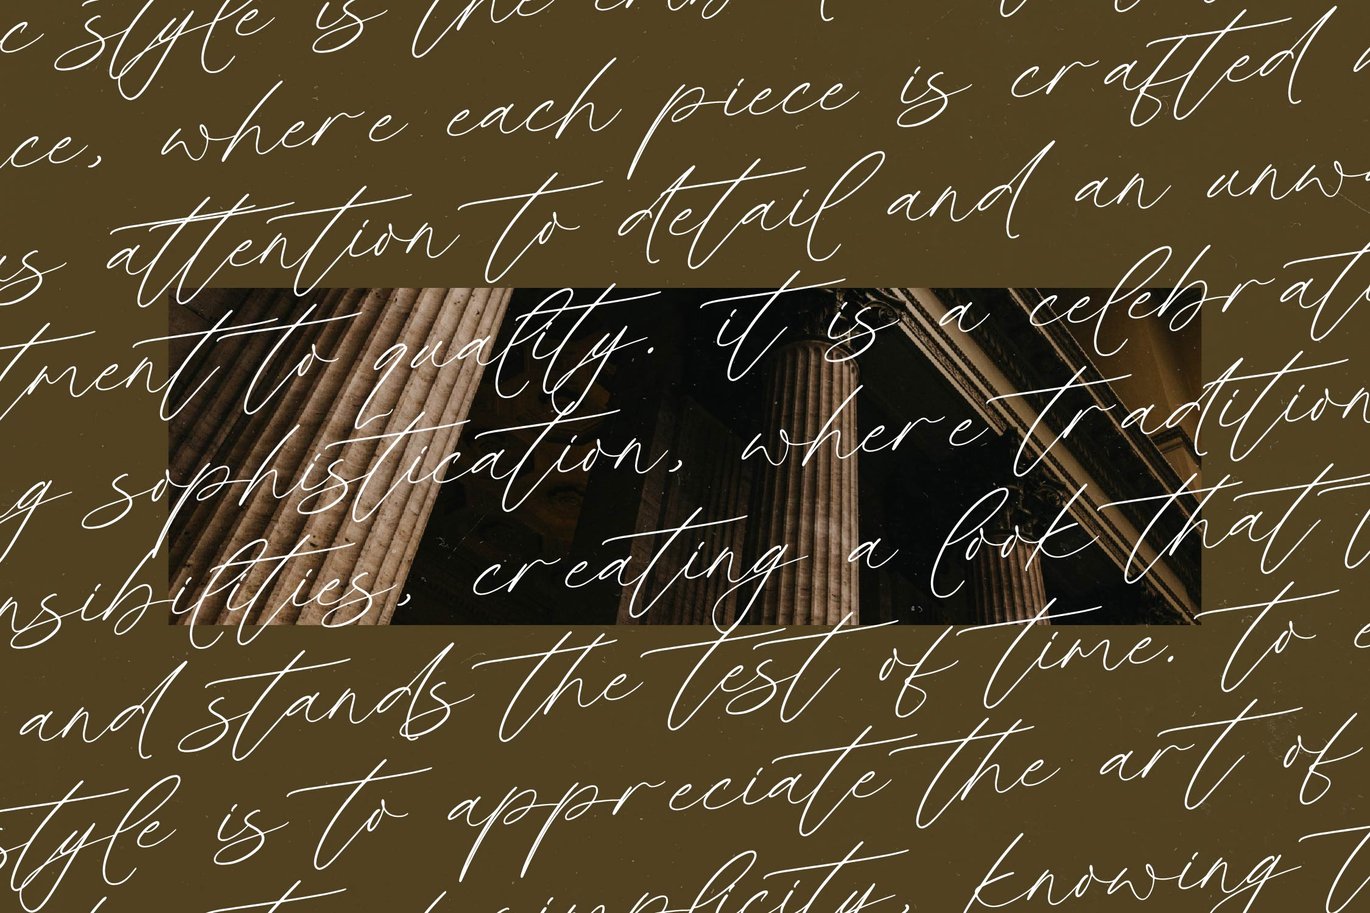 c style is the
ce, where each piece is crafted
us attention to detail and an unw
tment to quality. it is a celebrat
g sophistication, where tradition
nsibilities, creating a look that t
and stands the test of time. to e
style is to appreciate the art of
simplicity, knowing t